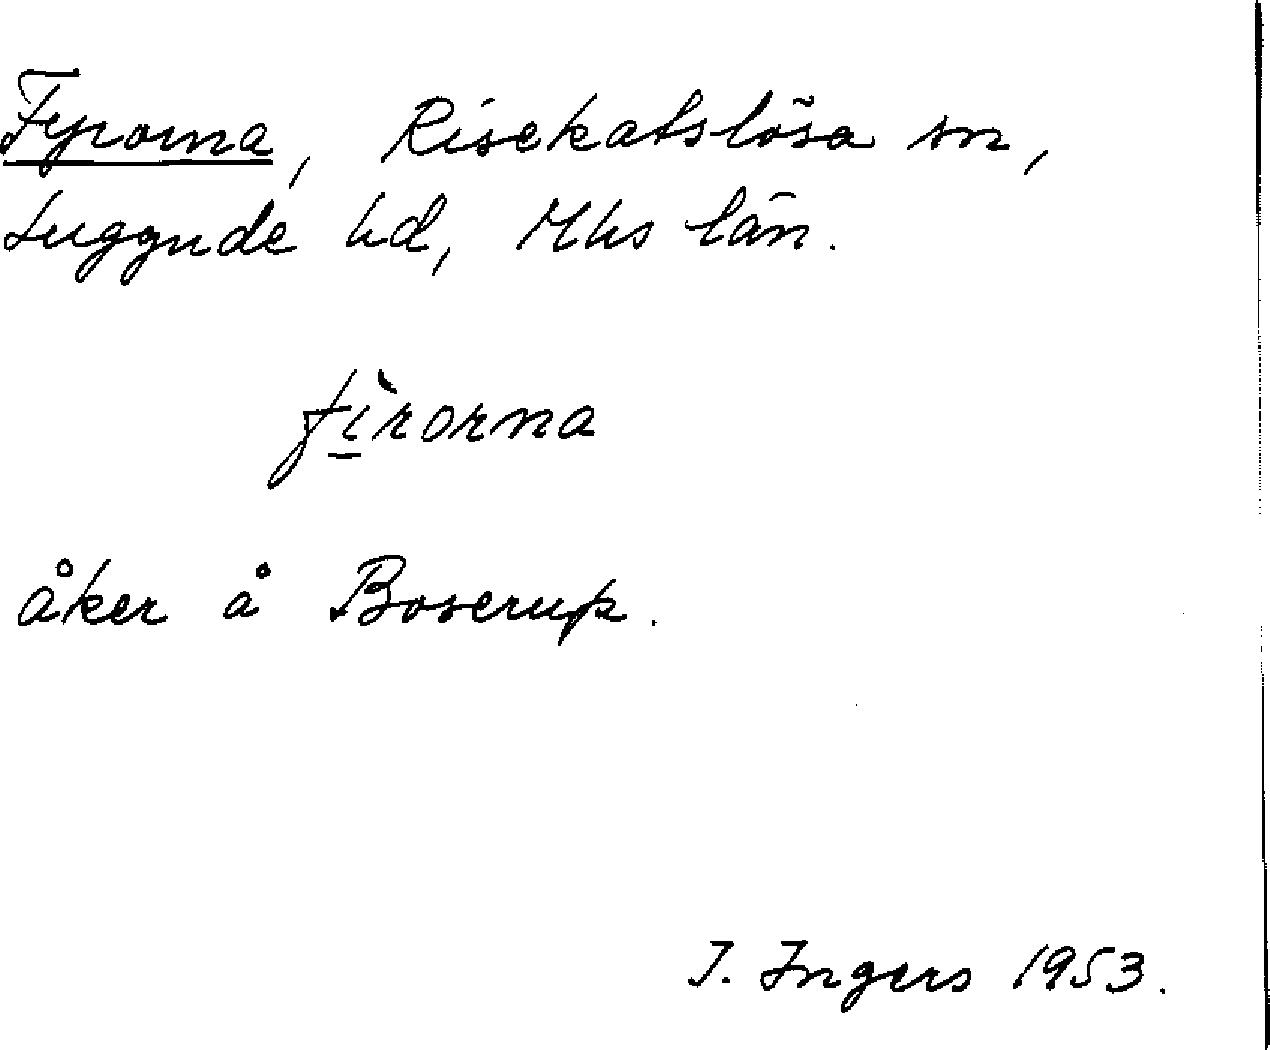 Fyrorna, Risekatslösa sn,
Luggude hd, Mhs län.
fìrorna
åker å Boserup.
I. Ingers 1953.